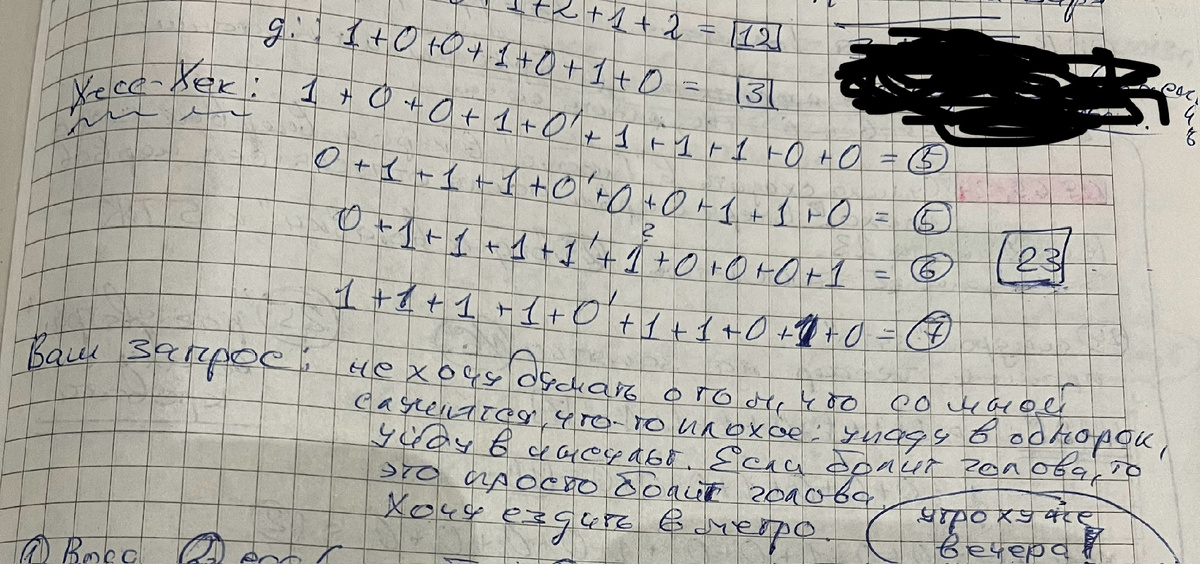 1+2+1+2 = 12
g: 1+0+0+1+0+1+0 = 3
Хесс-Хек: 1+0+0+1+0'+1+1+1+0+0 = 5
0+1+1+1+0'+0+0+1+1+0 = 5
0+1+1+1+1'+1+0+0+0+1 = 6 23
1+1+1+1+0'+1+1+0+1+0 = 7
Ваш запрос: не хочу думать о том, что со мной
случится что-то плохое: упаду в обморок,
уйду в инсульт. Если болит голова, то
это просто болит голова
Хочу ездить в метро.
утро хуже
вечера
① ②